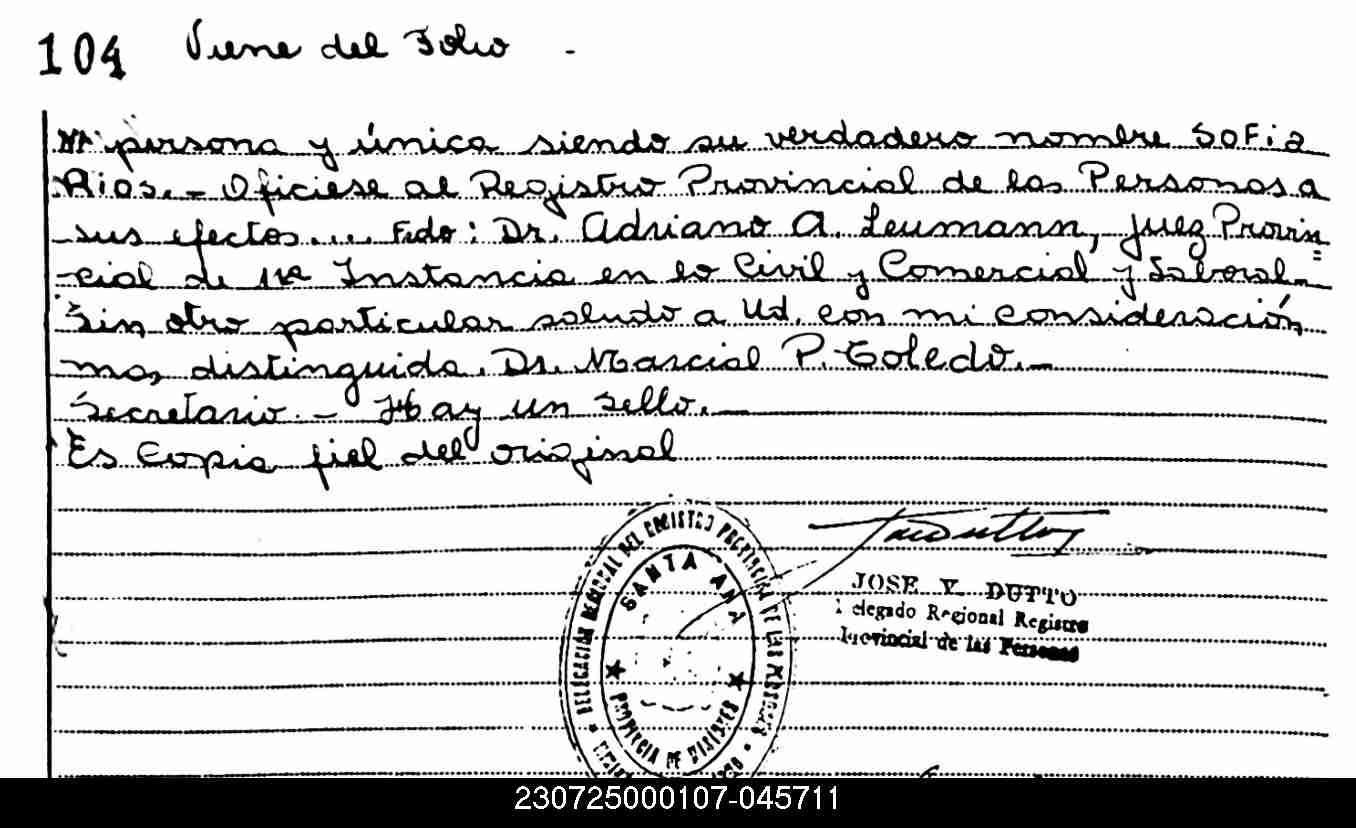 104 Viene del Folio -
persona y única siendo su verdadero nombre SoFia
Rios.- Oficiese al Registro Provincial de las Personas a
sus efectos.... Fdo: Dr. Adriano A. Leumann, Juez Provin=
cial de 1ra Instancia en lo Civil y Comercial y Laboral.-
Sin otro particular saludo a Ud. con mi consideración
mas distinguida. Dr. Marcial P. Toledo.-
Secretario.- Hay un sello.-
Es Copia fiel del original
DELEGACIÓN REGIONAL DEL REGISTRO PROVINCIAL DE LAS PERSONAS
SANTA ANA
PROVINCIA DE MISIONES
JOSE V. DUTTO
Delegado Regional Registro
Provincial de las Personas
230725000107-045711